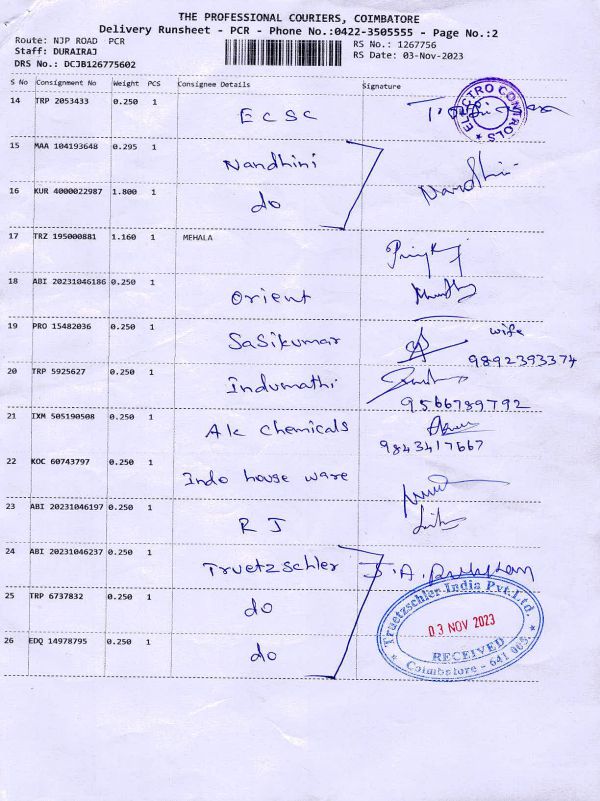 THE PROFESSIONAL COURIERS, COIMBATORE
Delivery Runsheet - PCR - Phone No.:0422-3505555 - Page No.:2
Route: NJP ROAD PCR
RS No.: 1267756
Staff: DURAIRAJ
RS Date: 03-Nov-2023
DRS No.: DCJB126775602
S No Consignment No Weight PCS Consignee Details Signature
14 TRP 2053433 0.250 1 ECSC
ELECTRO CONTROLS
15 MAA 104193648 0.295 1 Nandhini
Nandhini
16 KUR 4000022987 1.800 1 do
17 TRZ 195000881 1.160 1 MEHALA
18 ABI 20231046186 0.250 1 Orient
19 PRO 15482036 0.250 1 Sasikumar wife
9892393374
20 TRP 5925627 0.250 1 Indumathi
9566789792
21 IXM 505190508 0.250 1 Ak chemicals
9843417667
22 KOC 60743797 0.250 1 Indo house ware
23 ABI 20231046197 0.250 1 R J
24 ABI 20231046237 0.250 1 Truetzschler
25 TRP 6737832 0.250 1 do
26 EDQ 14978795 0.250 1 do
Truetzschler India Pvt. Ltd.
03 NOV 2023
RECEIVED
Coimbatore - 641 005